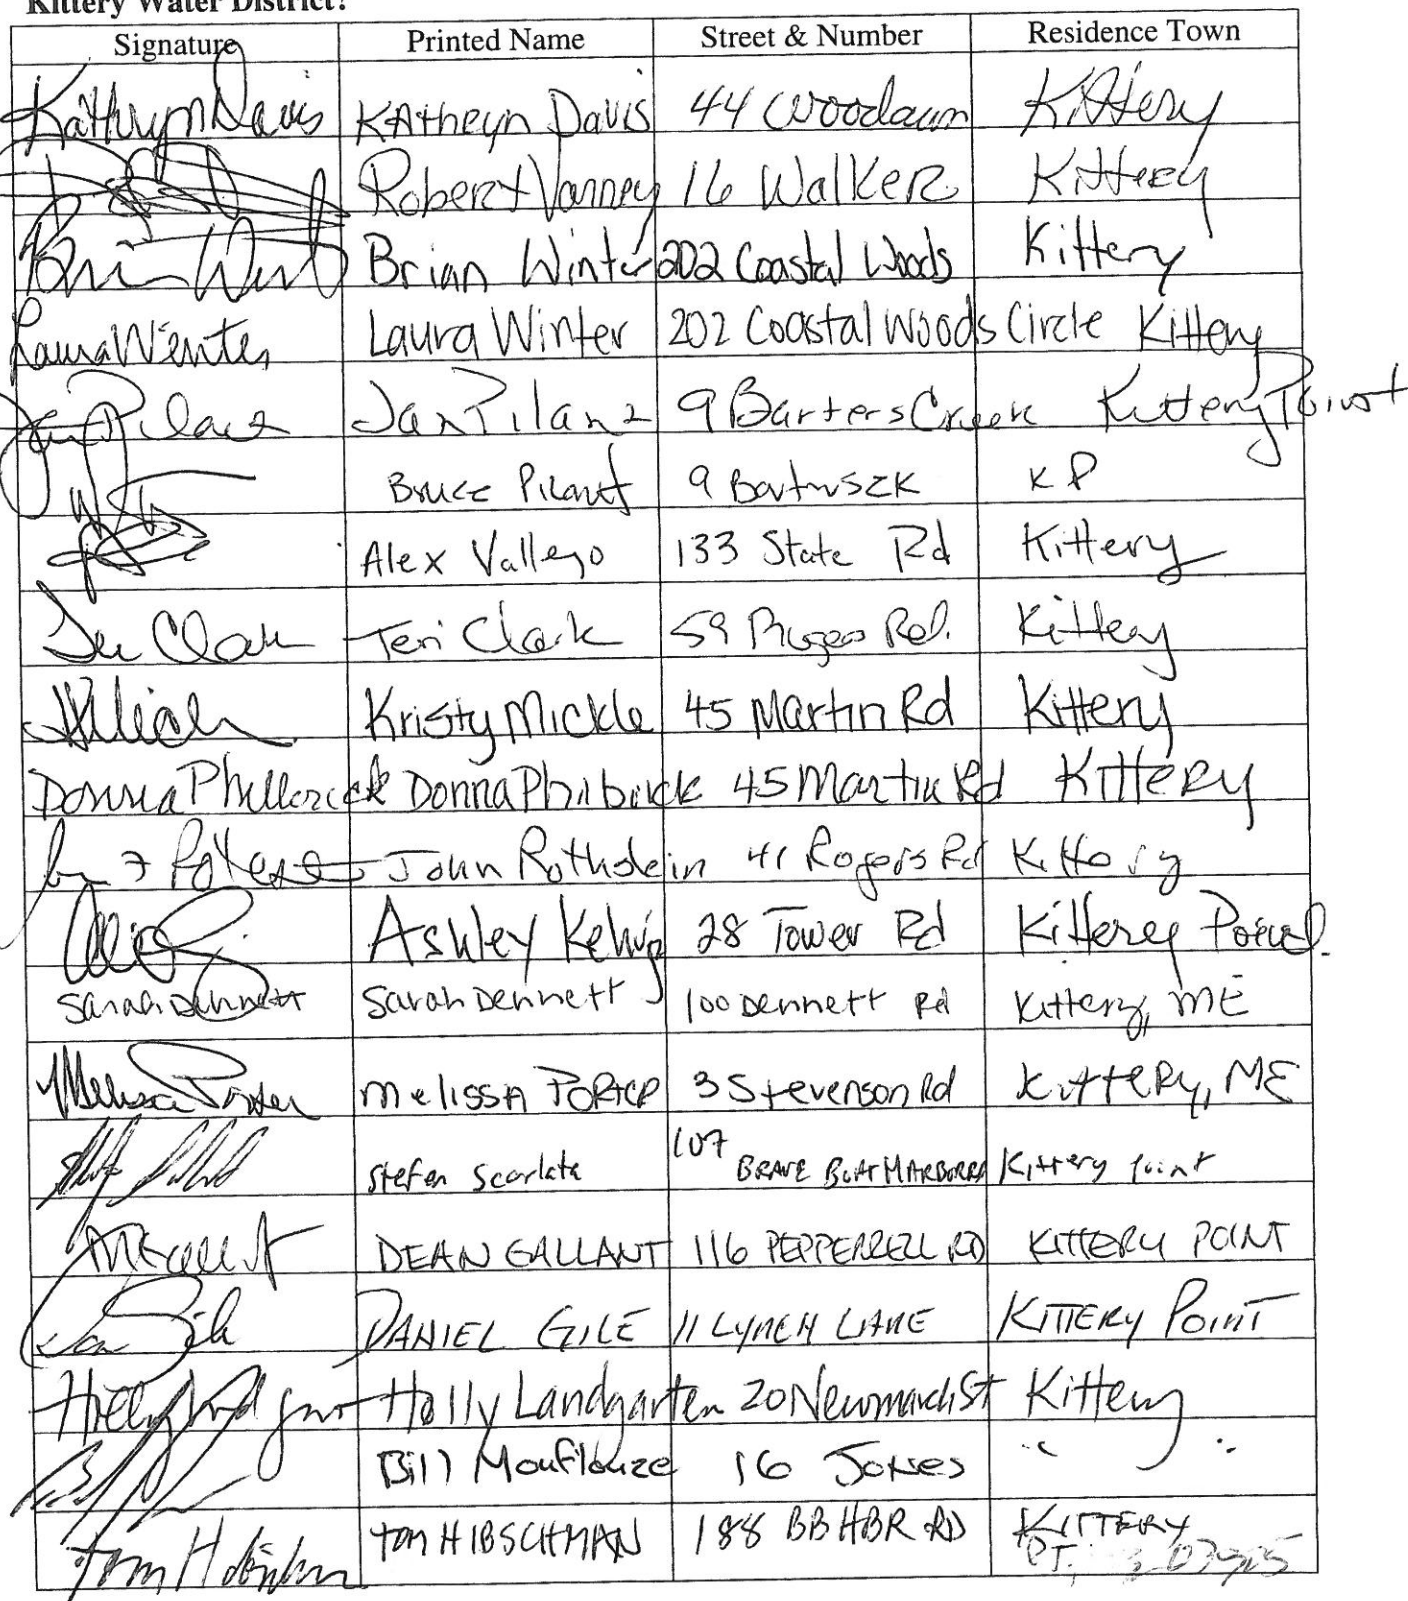 Kittery Water District?
Signature Printed Name Street & Number Residence Town
Kathryn Davis Katheyn Davis 44 Woodlawn Kittery
Robert Varney 16 Walker Kittery
Brian Wint Brian Winter 202 Coastal Woods Kittery
Laura Winter Laura Winter 202 Coastal Woods Circle Kittery
Jan Pilanz Jan Pilanz 9 Barters Creek Kittery Point
Bruce 9 KP
Alex Vallejo 133 State Rd Kittery
Teri Clark Teri Clark 59 Rd. Kittery
Kristy Mickle 45 Martin Rd Kittery
Donna Philbrick Donna Philbrick 45 Martin Rd Kittery
John Rothstein 41 Rogers Rd Kittery
Ashley 28 Tower Rd Kittery Point
Sarah Dennett Sarah Dennett 100 Dennett Rd Kittery, ME
Melissa Porter Melissa Porter 3 Stevenson Rd Kittery, ME
Stefen Scarlata 107 Brave Boat Harbor Rd Kittery Point
DEAN GALLANT 116 PEPPERRELL RD KITTERY POINT
Dan Gile DANIEL GILE 11 LYNCH LANE KITTERY POINT
Holly Landgarten 20 Newmarch St Kittery
Bill 16 Jones " "
Tom Hibschman Tom HIBSCHMAN 188 BB HBR RD KITTERY
PT.